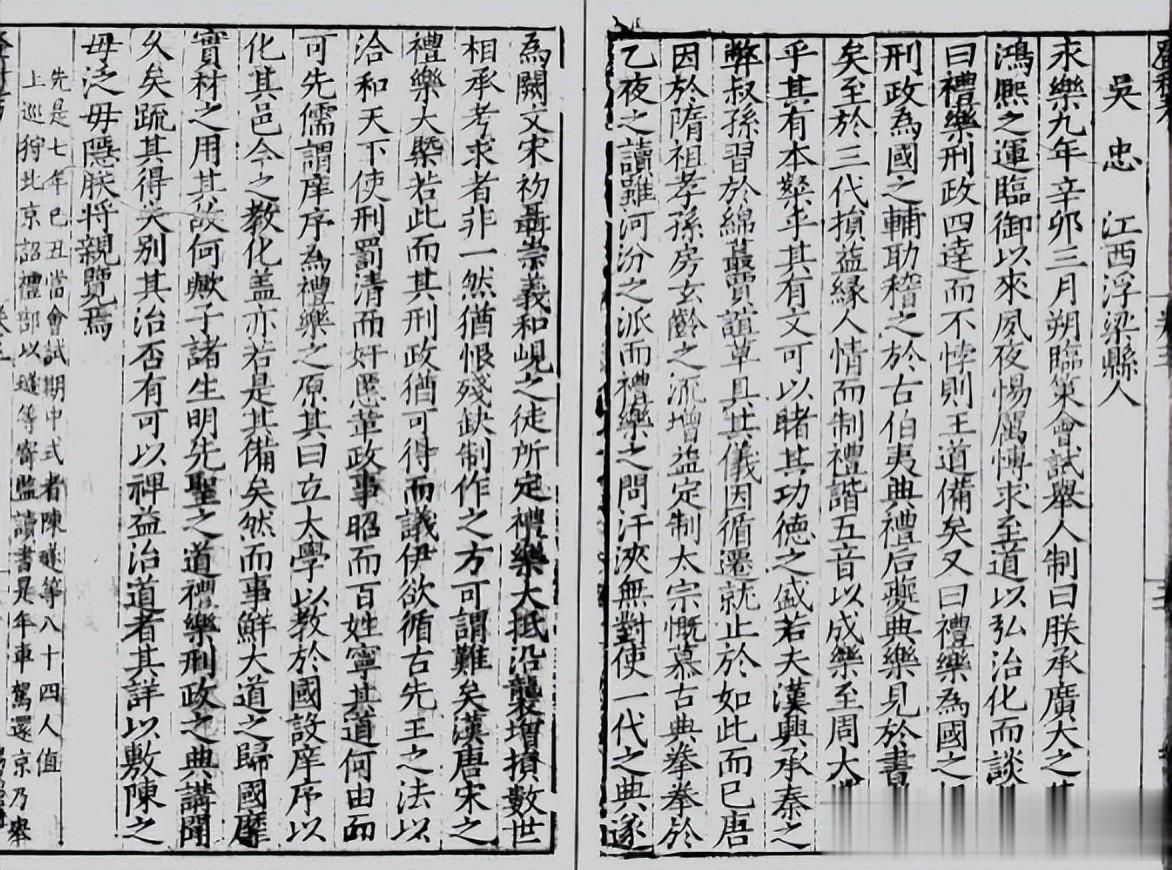 吳忠 江西浮梁縣人
求樂九年辛卯三月朔臨策會試舉人制曰朕承廣大之
鴻熈之運臨御以來夙夜惕厲慱求至道以弘治化而談
曰禮樂刑政四達而不悖則王道備矣又曰禮樂為國之
刑政為國之輔助稽之於古伯夷典禮后夔典樂見於書
矣至於三代損益緣人情而制禮諧五音以成樂至周大
乎其有本粲乎其有文可以睹其功德之盛若夫漢興承秦之
弊叔孫習於綿蕞賈誼草具其儀因循遷就止於如此而已唐
因於隋祖孝孫房玄齡之流增益定制太宗慨慕古典拳拳於
乙夜之讀雖河汾之派而禮樂之問汗浹無對使一代之典遂
為闕文宋初聶崇義和峴之徒所定禮樂大抵沿襲增損數世
相承考求者非一然猶恨殘缺制作之方可謂難矣漢唐宋之
禮樂大槩若此而其刑政猶可得而議伊欲循古先王之法以
洽和天下使刑罰清而奸慝革政事昭而百姓寧其道何由而
可先儒謂庠序為禮樂之原其曰立大學以教於國設庠序以
化其邑今之教化盖亦若是其備矣然而事鮮大道之歸國靡
實材之用其故何歟子諸生明先聖之道禮樂刑政之典講聞
久矣疏其得失別其治否有可以裨益治道者其詳以敷陳之
毋泛毋隱朕將親覽焉
先是七年已丑當會試期中式者陳璲等八十四人值
上巡狩北京詔禮部以璲等寄監讀書是年車駕還京乃舉